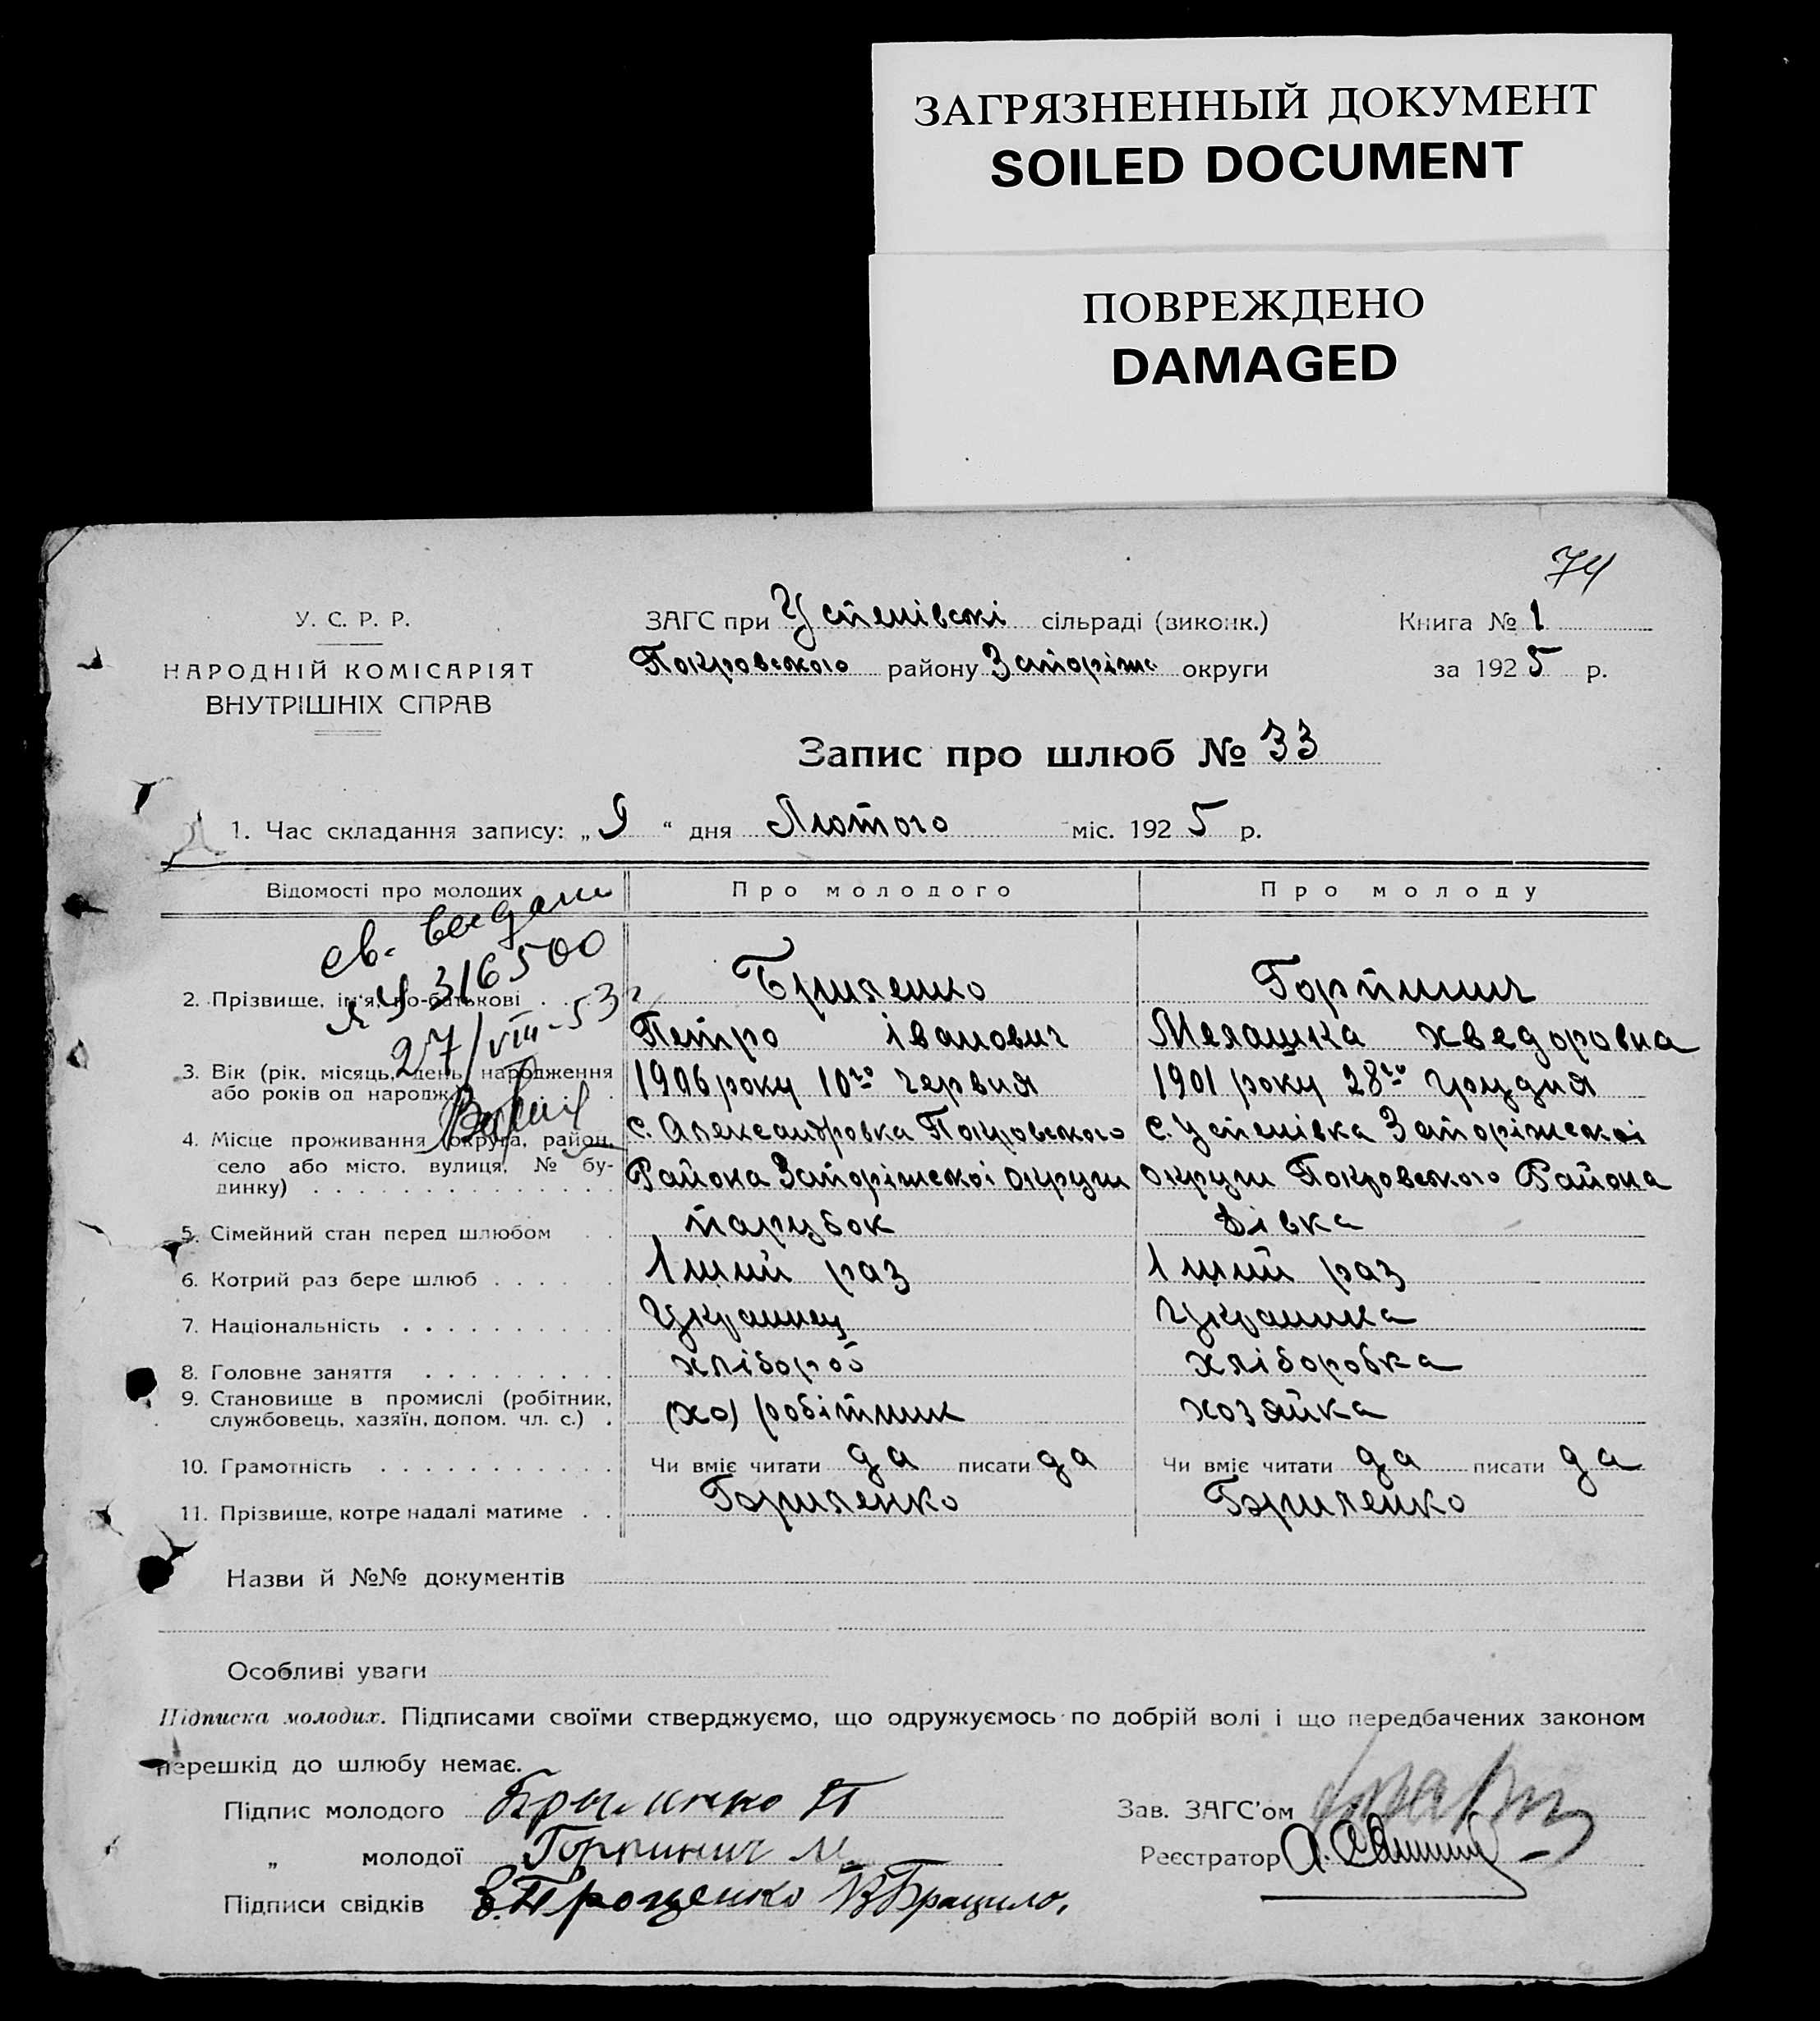 ЗАГРЯЗНЕННЫЙ ДОКУМЕНТ
SOILED DOCUMENT
ПОВРЕЖДЕНО
DAMAGED
74
У. С. Р. Р.
НАРОДНІЙ КОМІСАРІЯТ
ВНУТРІШНІХ СПРАВ
ЗАГС при Успенівскі сільраді (виконк.)
Покровського району Запоріж. округи
Книга № 1
за 1925 р.
Запис про шлюб № 33
1. Час складання запису: „9“ дня Лютого міс. 1925 р.
Відомості про молодих Про молодого Про молоду
св. выдано
316500
27/VIII-53 г
2. Прізвище, ім'я, по-батькові . . . Гориинич
Петро Іванович Мелашка Хведоровна
3. Вік (рік, місяць, день народження 1906 року 10го червня 1901 року 28го грудня
або років од народж.)
4. Місце проживання (округа, район, с. Александровка Покровського с. Успенівка Запоріжскоі
село або місто, вулиця, № бу- Района Запоріжскоі округи округи Покровського Района
динку) . . . . . . . . . . . . . .
5. Сімейний стан перед шлюбом . . парубок дівка
6. Котрий раз бере шлюб . . . . . 1ший раз 1ший раз
7. Національність . . . . . . . . . . Украинец Украинка
8. Головне заняття . . . . . . . . . хлібороб хліборобка
9. Становище в промислі (робітник, (хо) робітник хозяйка
службовець, хазяїн, допом. чл. с.) .
10. Грамотність . . . . . . . . . . . Чи вміє читати да писати да Чи вміє читати да писати да
11. Прізвище, котре надалі матиме . . Бриленко Бриленко
Назви й №№ документів
Особливі уваги
Підписка молодих. Підписами своїми стверджуємо, що одружуємось по добрій волі і що передбачених законом
перешкід до шлюбу немає.
Підпис молодого П
Зав. ЗАГС'ом
„ молодої Горпинич М
Реєстратор А.
Підписи свідків Проценко В Брацило,